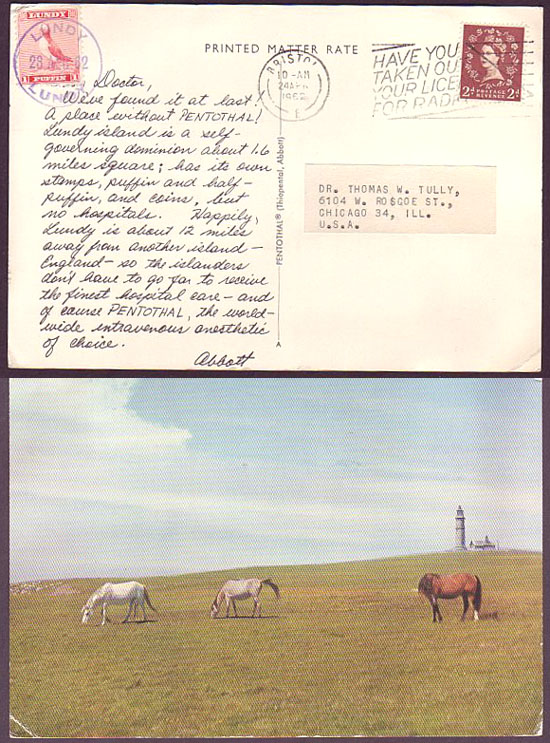 LUNDY
1 PUFFIN 1
LUNDY
LUNDY
PRINTED MATTER RATE
BRISTOL
10-AM
24 APR
1962
HAVE YOU
TAKEN OUT
YOUR LICE
FOR RADI
2d POSTAGE REVENUE 2d
Doctor,
We've found it at last!
A place without PENTOTHAL!
Lundy island is a self-
governing dominion about 1.6
miles square; has its own
stamps, puffin and half-
puffin, and coins, but
no hospitals. Happily,
Lundy is about 12 miles
away from another island –
England – so the islanders
don't have to go far to receive
the finest hospital care – and
of course PENTOTHAL, the world-
wide intravenous anesthetic
of choice.
Abbott
PENTOTHAL® (Thiopental, Abbott)
A
DR. THOMAS W. TULLY,
6104 W. ROSCOE ST.,
CHICAGO 34, ILL.
U.S.A.